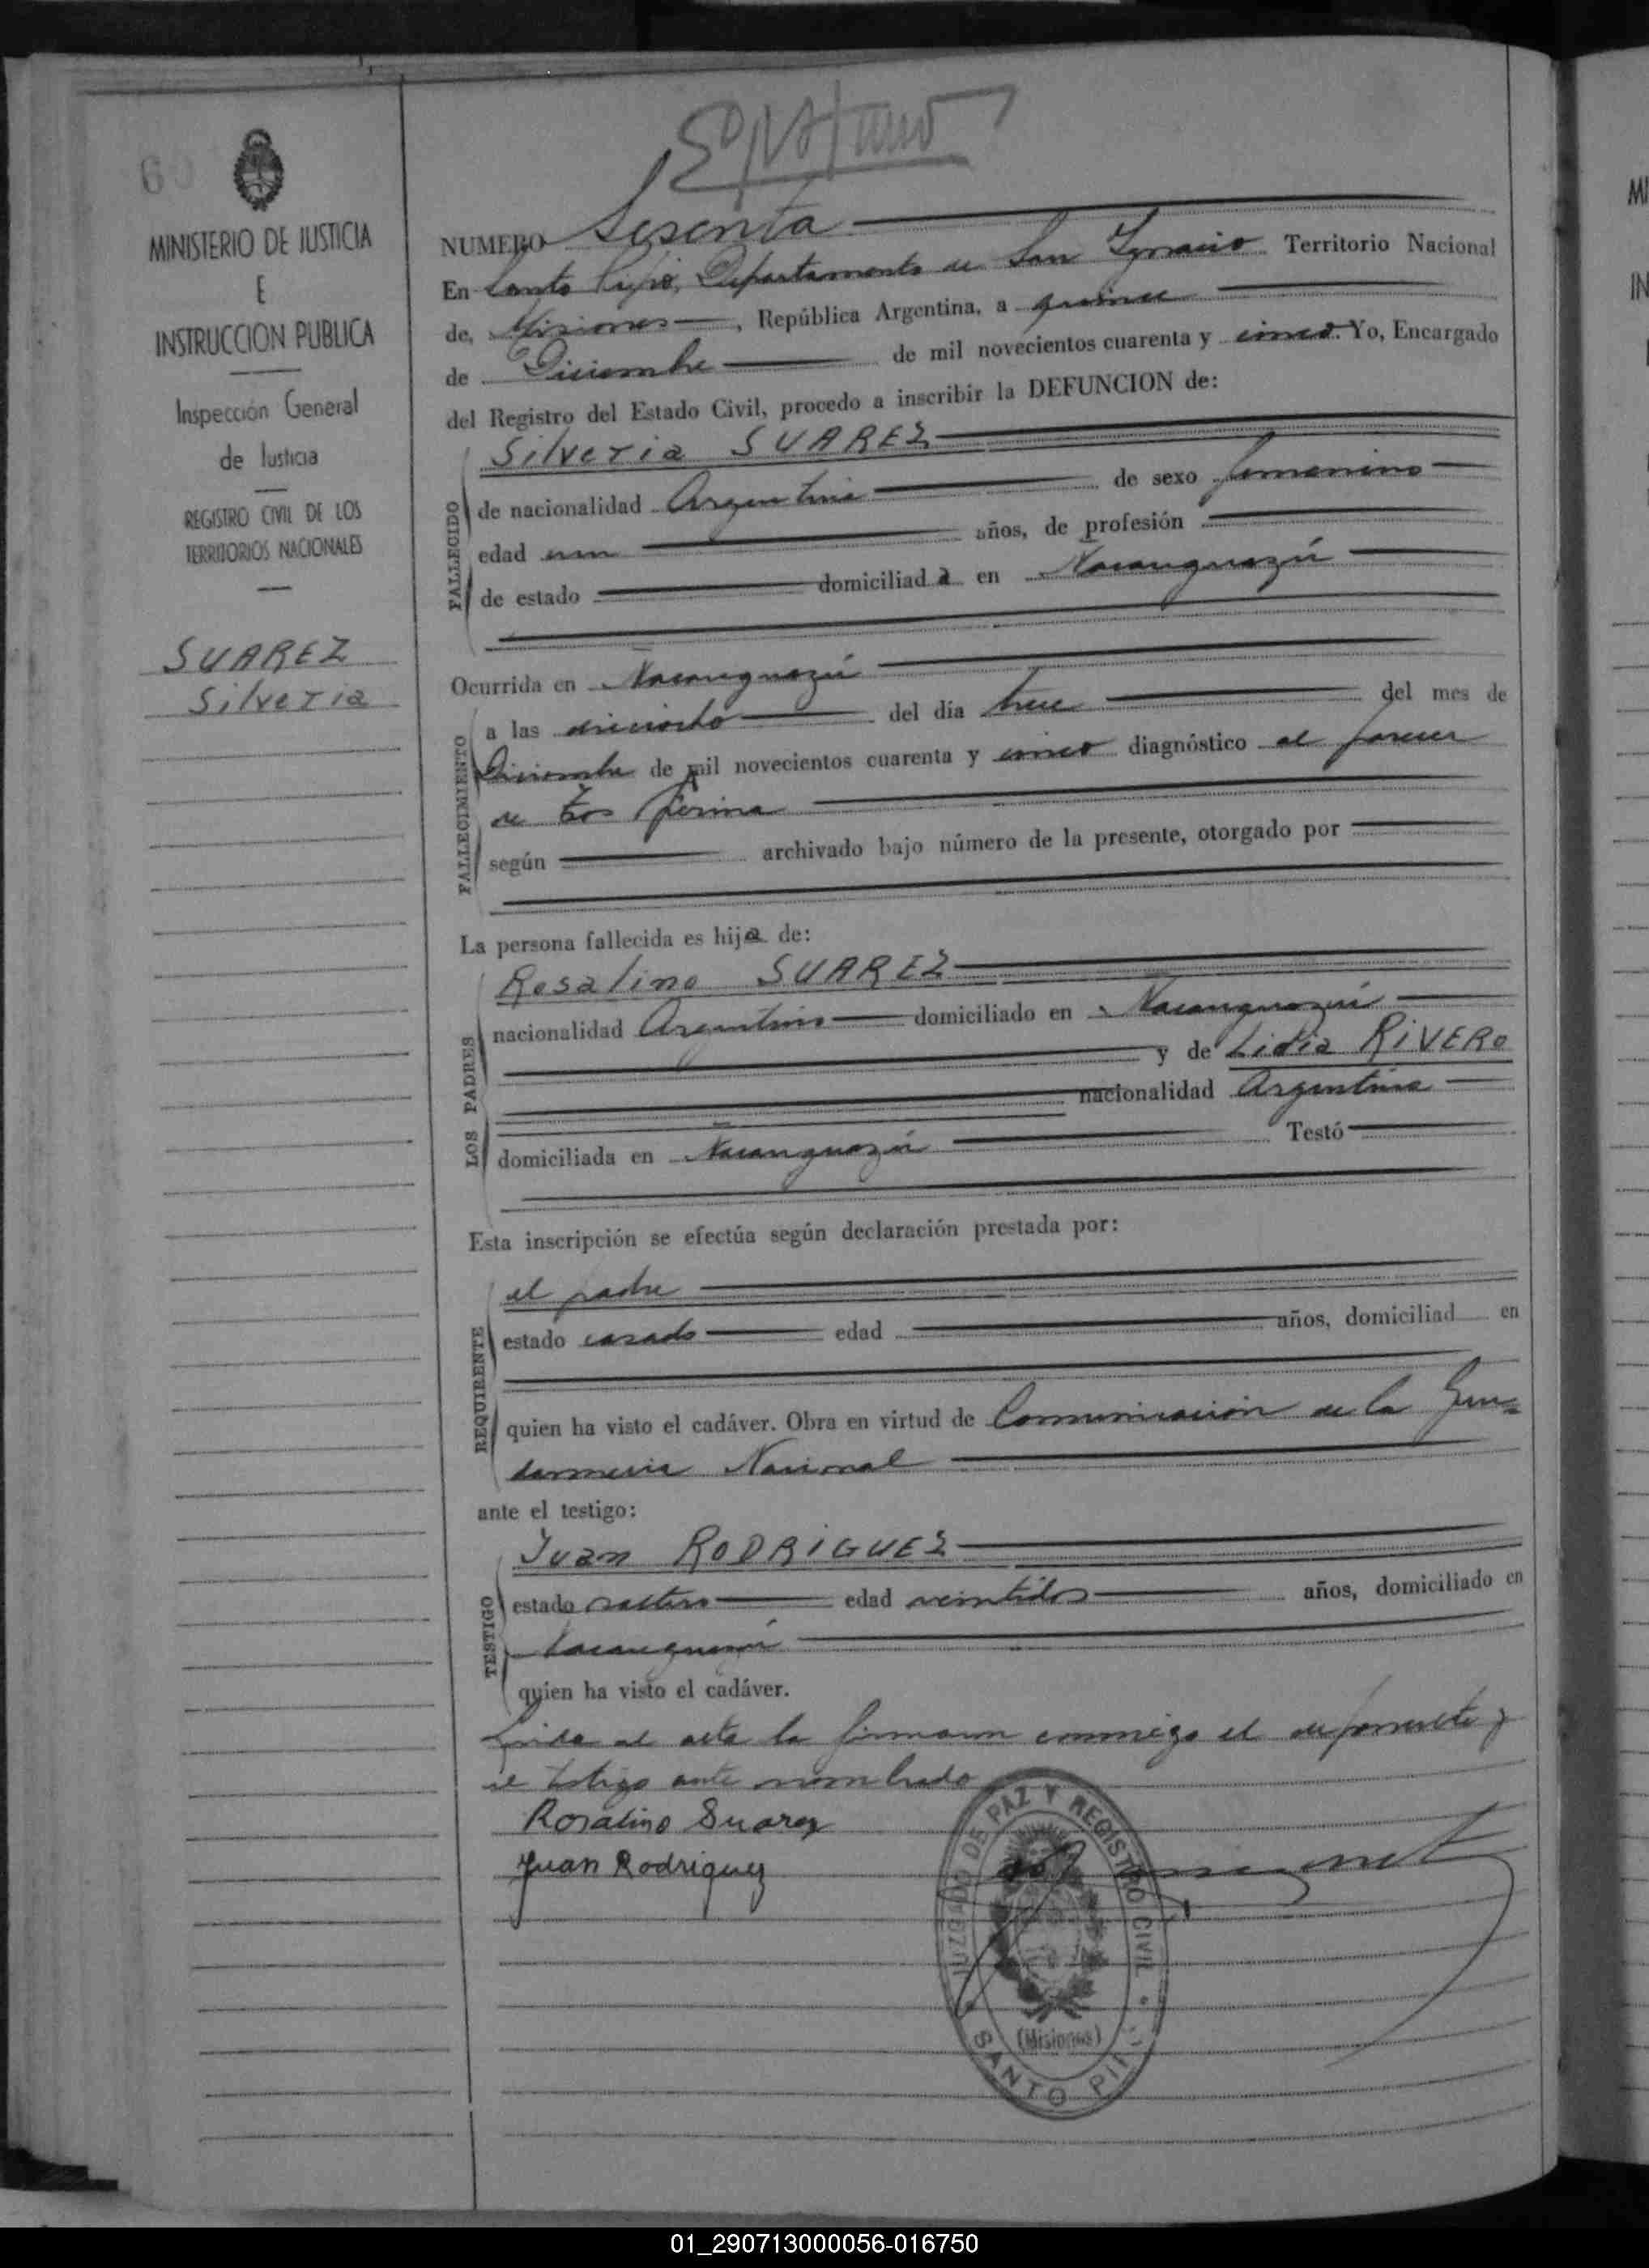 60
MINISTERIO DE JUSTICIA
E
INSTRUCCION PUBLICA
Inspección General
de Justicia
REGISTRO CIVIL DE LOS
TERRITORIOS NACIONALES
SUAREZ
Silveria
NUMERO Sesenta
En Santo Pipó, Departamento de San Ygnacio Territorio Nacional
de, Misiones, República Argentina, a quince
de Diciembre de mil novecientos cuarenta y cinco. Yo, Encargado
del Registro del Estado Civil, procedo a inscribir la DEFUNCION de:
FALLECIDO
Silveria SUAREZ
de nacionalidad Argentina de sexo femenino
edad un años, de profesión
de estado domiciliada en Ñacanguazú
Ocurrida en Ñacanguazú
FALLECIMIENTO
a las dieciocho del día trece del mes de
Diciembre de mil novecientos cuarenta y cinco diagnóstico al parecer
de Tos ferina
según archivado bajo número de la presente, otorgado por
La persona fallecida es hija de:
LOS PADRES
Rosalino SUAREZ
nacionalidad Argentino domiciliado en Ñacanguazú
y de Lidia RIVERO
nacionalidad Argentina
domiciliada en Ñacanguazú Testó
Esta inscripción se efectúa según declaración prestada por:
REQUIRENTE
el padre
estado casado edad años, domiciliad en
quien ha visto el cadáver. Obra en virtud de Comunicación de la Gen=
darmeria Nacional
ante el testigo:
TESTIGO
Juan RODRIGUEZ
estado soltero edad veintidos años, domiciliado en
Ñacanguazú
quien ha visto el cadáver.
Leida el acta la firmaron conmigo el deponente y
el testigo ante nombrado
Rosalino Suarez
Juan Rodriguez
JUZGADO DE PAZ Y REGISTRO CIVIL
(Misiones)
SANTO PIPÓ
01_290713000056-016750